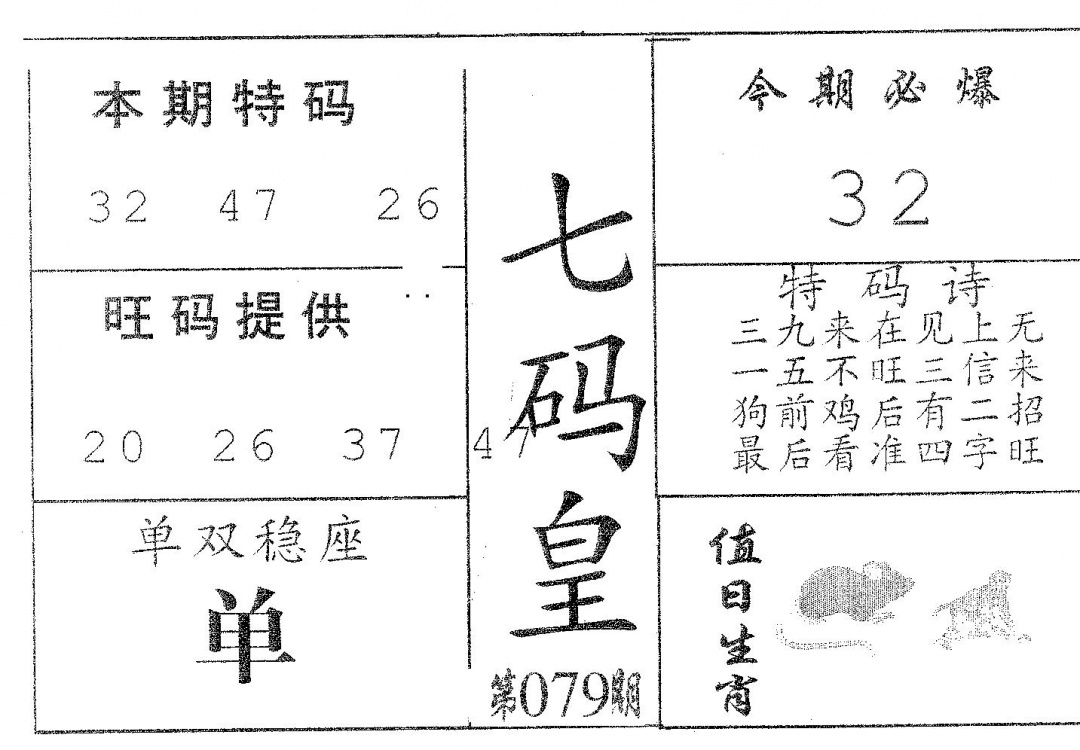 本期特码
32 47 26
旺码提供
20 26 37 47
单双稳座
单
七码皇
第079期
今期必爆
32
特码诗
三九来在见上无
一五不旺三信来
狗前鸡后有二招
最后看准四字旺
值日生肖